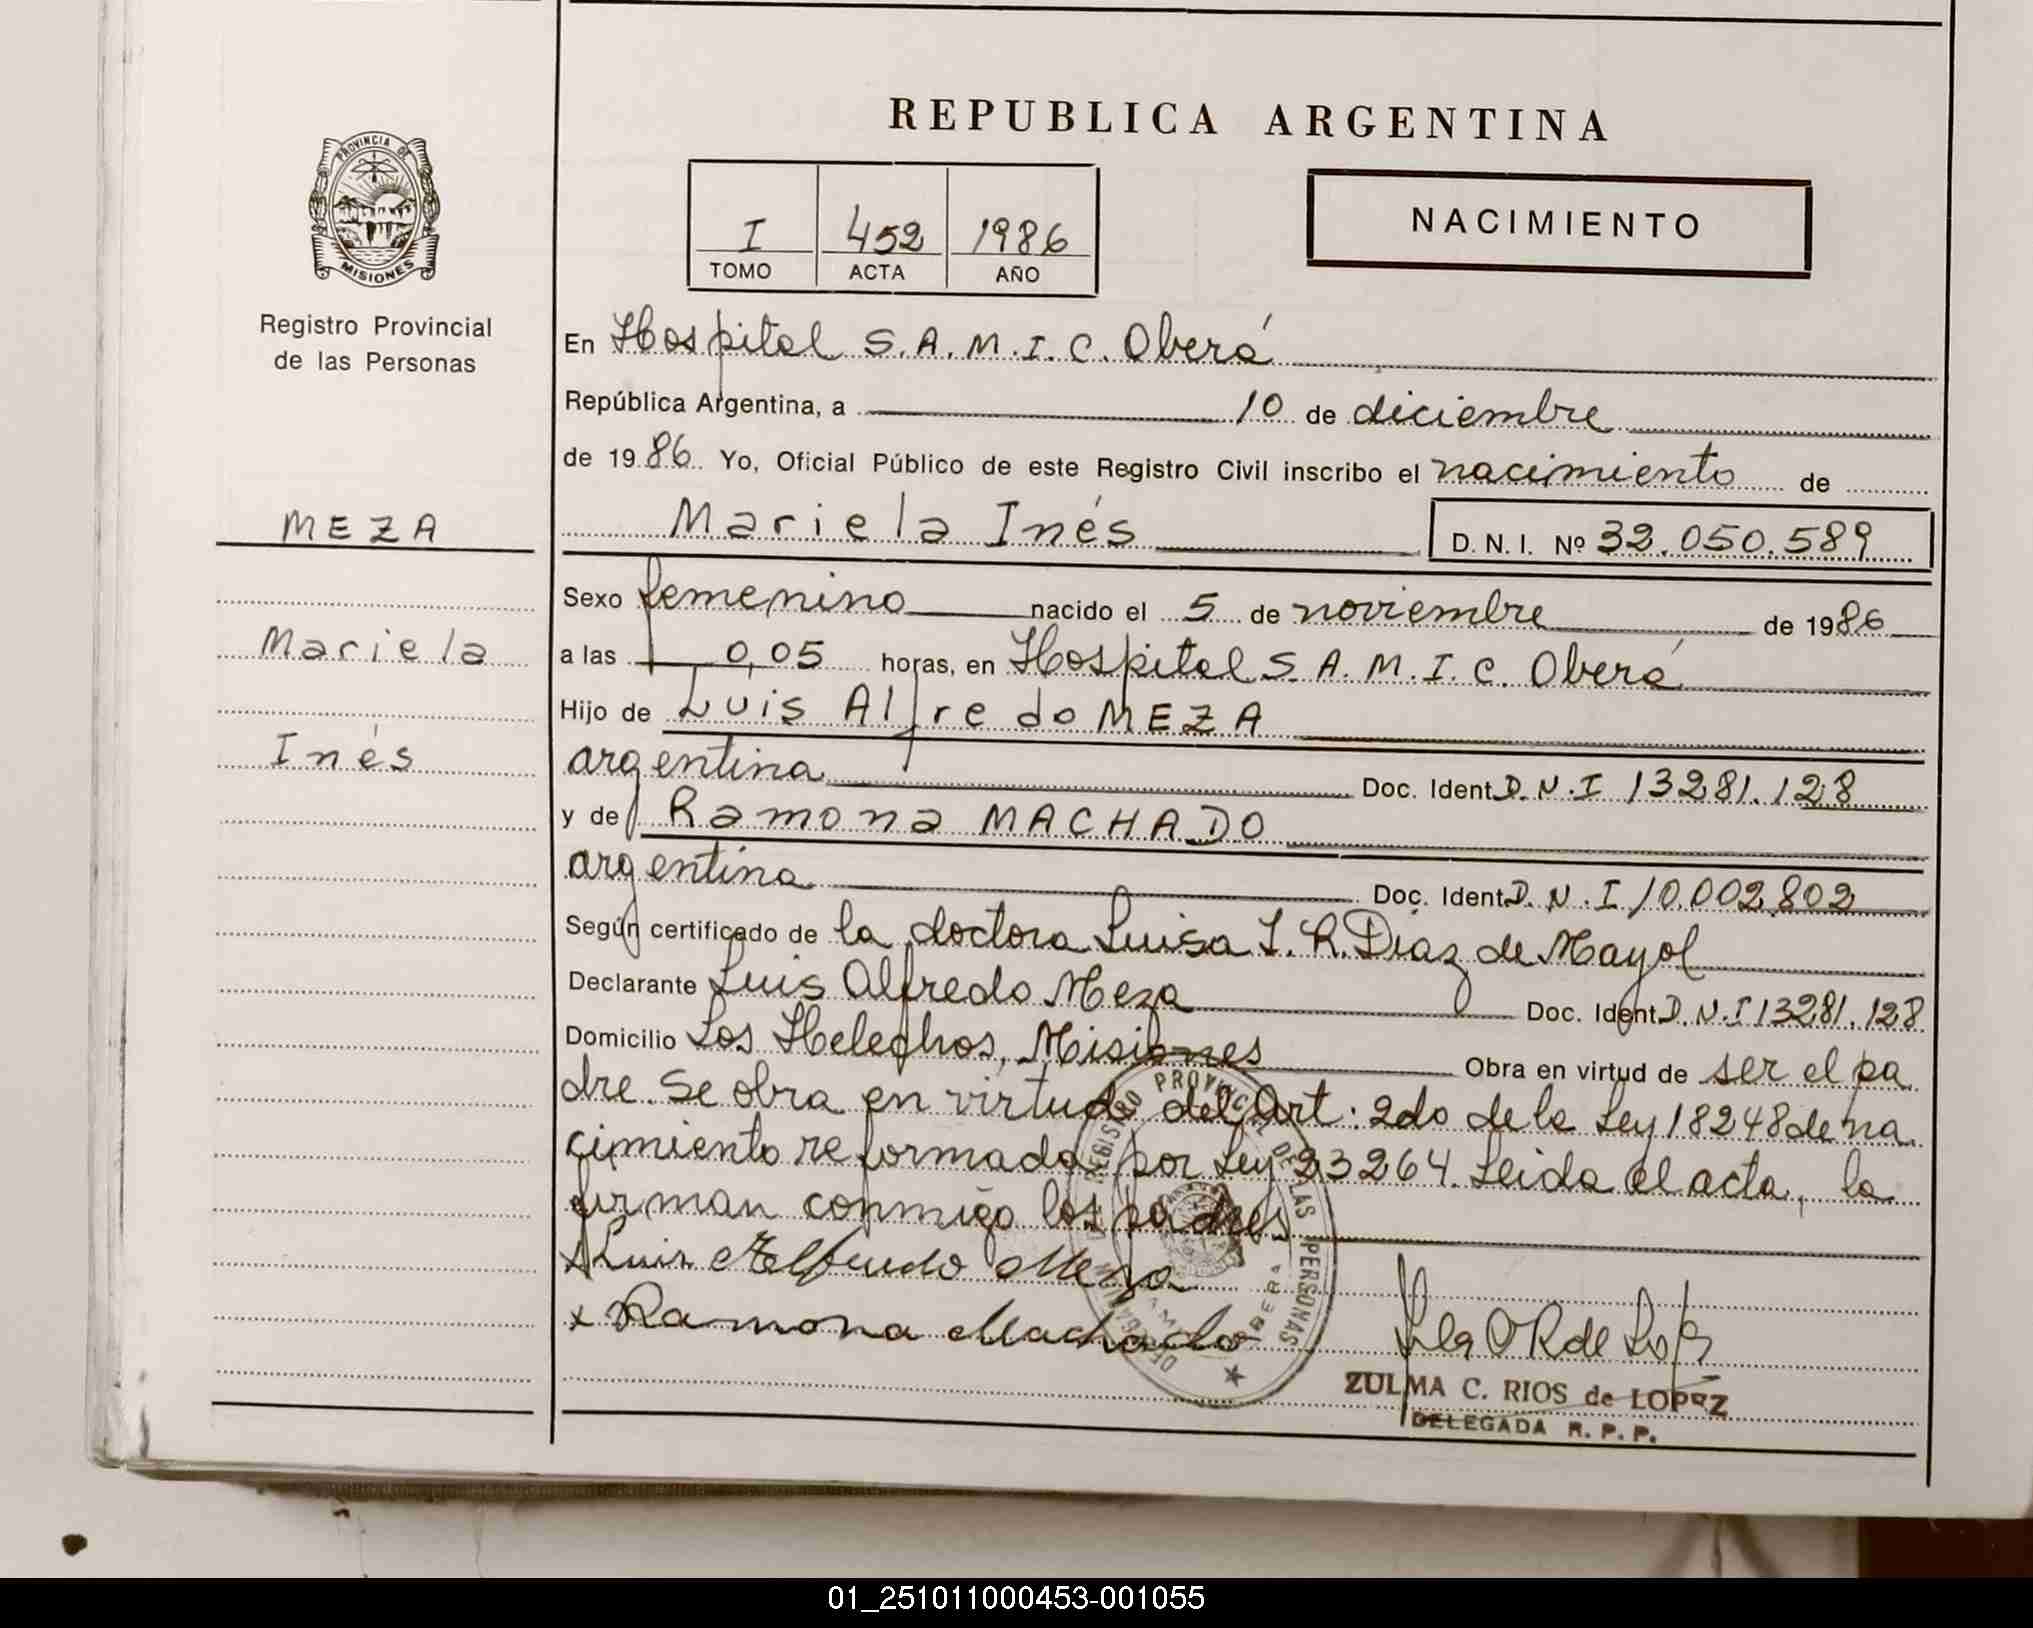 REPUBLICA ARGENTINA
PROVINCIA DE
MISIONES
Registro Provincial
de las Personas
I 452 1986
TOMO ACTA AÑO
NACIMIENTO
En Hospital S.A.M.I.C. Oberá
República Argentina, a 10 de diciembre
de 1986. Yo, Oficial Público de este Registro Civil inscribo el nacimiento de
MEZA
Mariela Inés D.N.I. Nº 32.050.589
Sexo femenino nacido el 5 de noviembre de 1986
Mariela
a las 0,05 horas, en Hospital S.A.M.I.C. Oberá
Hijo de Luis Alfredo MEZA
Inés
argentina Doc. Ident D.N.I 13281.128
y de Ramona MACHADO
argentina Doc. Ident D.N.I 10.002.802
Según certificado de la doctora Luisa I. R. Diaz de Mayol
Declarante Luis Alfredo Meza Doc. Ident D.N.I 13281.128
Domicilio Los Helechos, Misiones Obra en virtud de ser el pa
dre. Se obra en virtud del Art: 2do de la Ley 18248 de na
cimiento reformada por Ley 23264. Leida el acta, la
firman conmigo los padres
x Luis Alfredo Meza
x Ramona Machado
REGISTRO PROVINCIAL DE LAS PERSONAS
OBERA
ZULMA C. RIOS de LOPEZ
DELEGADA R. P. P.
01_251011000453-001055